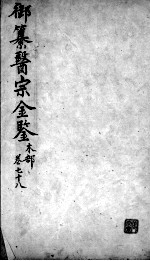 御纂醫宗金鑒
木部
卷七十八